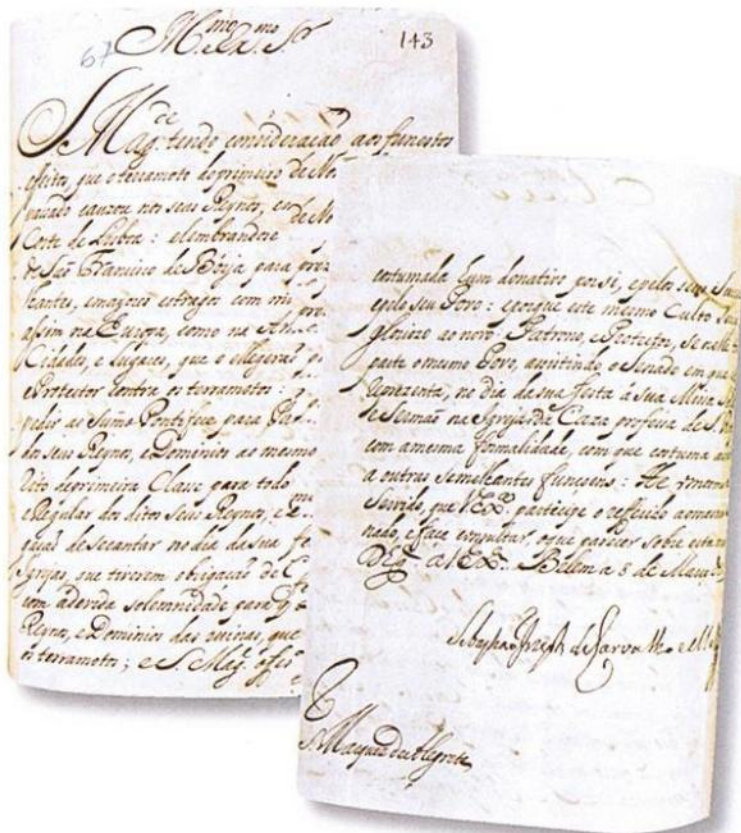 67
143
Ill.mo Ex.mo S.r
S. Mag.de tendo consideração aos funestos
effeitos, que o terramoto do primeiro de No
cauzou nos seus Reynos, e
Corte de Lisboa: elembrandose
de São Francisco de Borja para
com
assim na Europa, como na
Cidades, e Lugares, que o elegeraõ
e Protector contra os terramotos:
pedir ao Sumo Pontifice para
dos seus Reynos, e Dominios ao mesmo
Rito de primeira Classe para todo
e Regular dos ditos seus Reynos, e
de se cantar no dia da sua
Igrejas, que tiverem obrigação de
com a devida solemnidade para
Reynos, e Dominios das ruinas, que
os terramotos; e S. Mag.
costumada hum donativo por si, e pelos seus
e pelo seu Povo: e porque este mesmo Culto
ao novo Patrono, e Protector, se
parte o mesmo Povo, assistindo o Senado em que
reprezenta, no dia da sua festa á sua Missa
de Sermaõ na Igreja da Caza professa de S.
com a mesma formalidade, com que costuma
a outras semelhantes funçoens: He o mesmo
Servido, que V. Ex.ª participe o referido ao mesmo
nado, e faça consultar, o que parecer sobre esta
D.s g.de a V. Ex.ª Belem a 8 de
Sebastiaõ Joseph de Carvalho e
S. Marquez de Alegrete